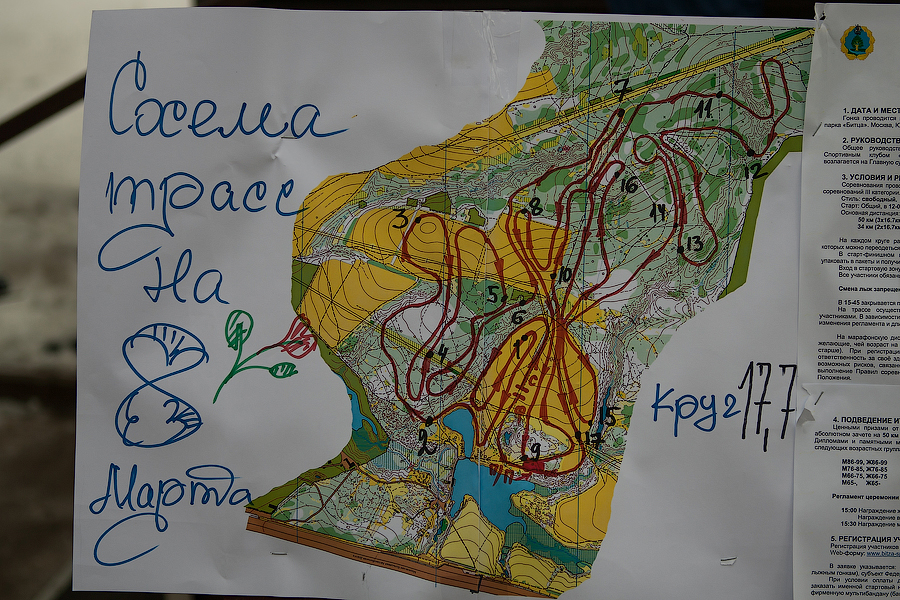 Схема
трасс
На
8
Марта
Круг 17,7
7
11
12
16
14
13
3
8
10
5
6
4
1
2
9
15
17
1. ДАТА И МЕСТ
Гонка проводится
парка «Битца». Москва, Ю
2. РУКОВОДСТВ
Общее руководств
Спортивным клубом
возлагается на Главную су
3. УСЛОВИЯ И Р
Соревнования пров
соревнований III категории
Стиль: свободный.
Старт: Общий, в 12-0
Основная дистанция
50 км (3х16.7км
34 км (2х16.7км
На каждом круге ра
которых можно переодеться
В старт-финишном
упаковать в пакеты и получи
Вход в стартовую зону
Все участники обязан
Смена лыж запреще
В 15-45 закрывается п
На трассе осущест
участниками. В зависимости
изменения регламента и дли
На марафонскую дис
желающие, чей возраст на
старше). При регистраци
ответственность за своё за
возможных рисков, связан
выполнение Правил сорев
Положения.
4. ПОДВЕДЕНИЕ И
Ценными призами от
абсолютном зачете на 50 км
Дипломами и памятными м
следующих возрастных групп
М86-99, Ж86-99
М76-85, Ж76-85
М66-75, Ж66-75
М65-, Ж65-
Регламент церемонии
15:00 Награждение
Награждение
15:30 Награждение м
5. РЕГИСТРАЦИЯ УЧ
Регистрация участников
Web-форму: www.bitza-s
В заявке указывается:
лыжным гонкам), субъект Феде
При условии оплаты д
заказать именной стартовый
фирменную мультибандану (ба